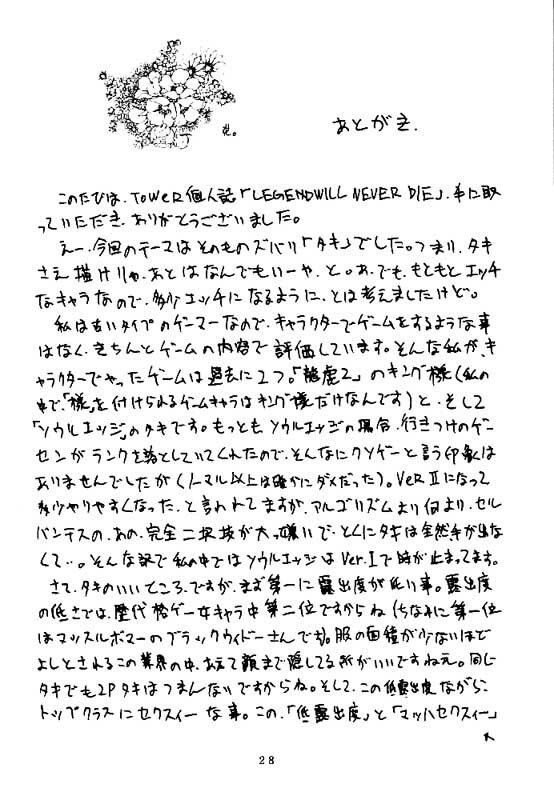 花。
あとがき.
このたびは、TOWER個人誌「LEGEND WILL NEVER DIE」、手に取
っていただき、ありがとうございました。
えー、今回のテーマはそのものズバリ「タキ」でした。つまり、タキ
さえ描けりゃ、あとはなんでもいーや、と。あ、でも、もともとエッチ
なキャラなので、多少エッチになるように、とは考えましたけど。
私は古いタイプのゲーマーなので、キャラクターでゲームをするような事
はなく、きちんとゲームの内容で評価しています。そんな私が、キ
ャラクターでやったゲームは過去に2つ。「龍虎2」のキング様(私の
中で、「様」を付けられるゲームキャラはキング様だけなんです)と、そして
「ソウルエッジ」のタキです。もっとも、ソウルエッジの場合、行きつけのゲー
センがランクを落としていてくれたので、そんなにクソゲーと言う印象は
ありませんでしたが(ノーマル以上は確かにダメだった)。Ver.IIになって
多少やりやすくなった、と言われてますが、アルゴリズムより何より、セル
バンテスの、あの、完全二択技が大っ嫌いで、とくにタキは全然手が出な
くて…。そんな訳で私の中ではソウルエッジはVer.Iで時が止まってます。
さて、タキのいいところ、ですが、まず第一に露出度が低い事。露出度
の低さでは、歴代格ゲー女キャラ中第二位ですからね(ちなみに第一位
はマッスルボマーのブラックウィドーさんです)。服の面積が少ないほど
よしとされるこの業界の中、あえて顔まで隠してる所がいいですねえ。同じ
タキでも2Pタキはつまんないですからね。そして、この低露出度ながら、
トップクラスにセクスィーな事。この、「低露出度」と「マッハセクスィー」
28